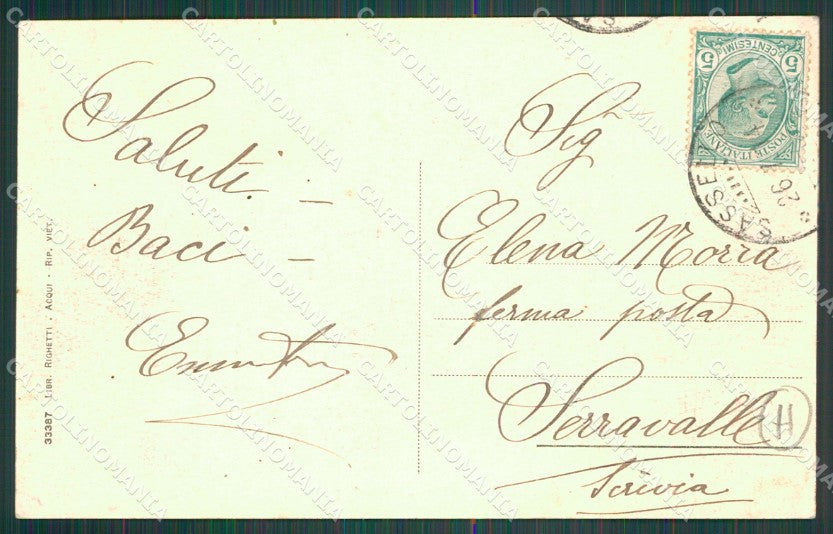 Saluti. –
Baci –
Sig.ra
Elena Moria
ferma posta
Serravalle
Scrivia
H
5 CENTESIMI 5
POSTE ITALIANE
SASSELLO
26
33387 LIBR. RIGHETTI - ACQUI - RIP. VIET.
CARTOLINOMANIA